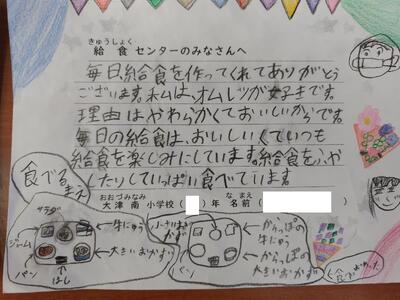 きゅうしょく
給食センターのみなさんへ
毎日、給食を作ってくれてありがとう
ございます。私は、オムレツが好きです。
理由はやわらかくておいしいからです。
毎日の給食は、おいしいくていつも
給食を楽しみにしています。給食をふや
したりしていっぱい食べています。
おおづみなみ なまえ
大津南小学校( )年 名前( )
食べるまえ
サラダ
ジャーム
パン
はし
牛にゅう
大きいおかず
小さいおかず
パン
からっぽの牛にゅう
からっぽの大きいおかず